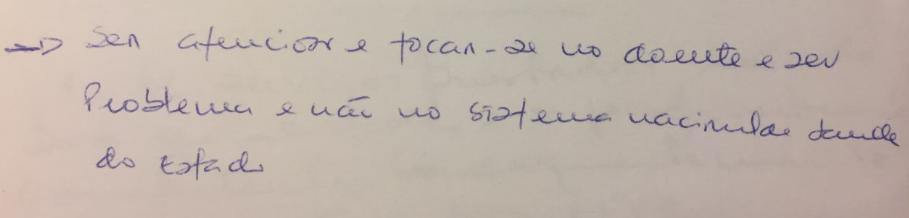 → Ser atencioso e focar-se no doente e seu
Problema e não no sistema nacional de saude
do Estado